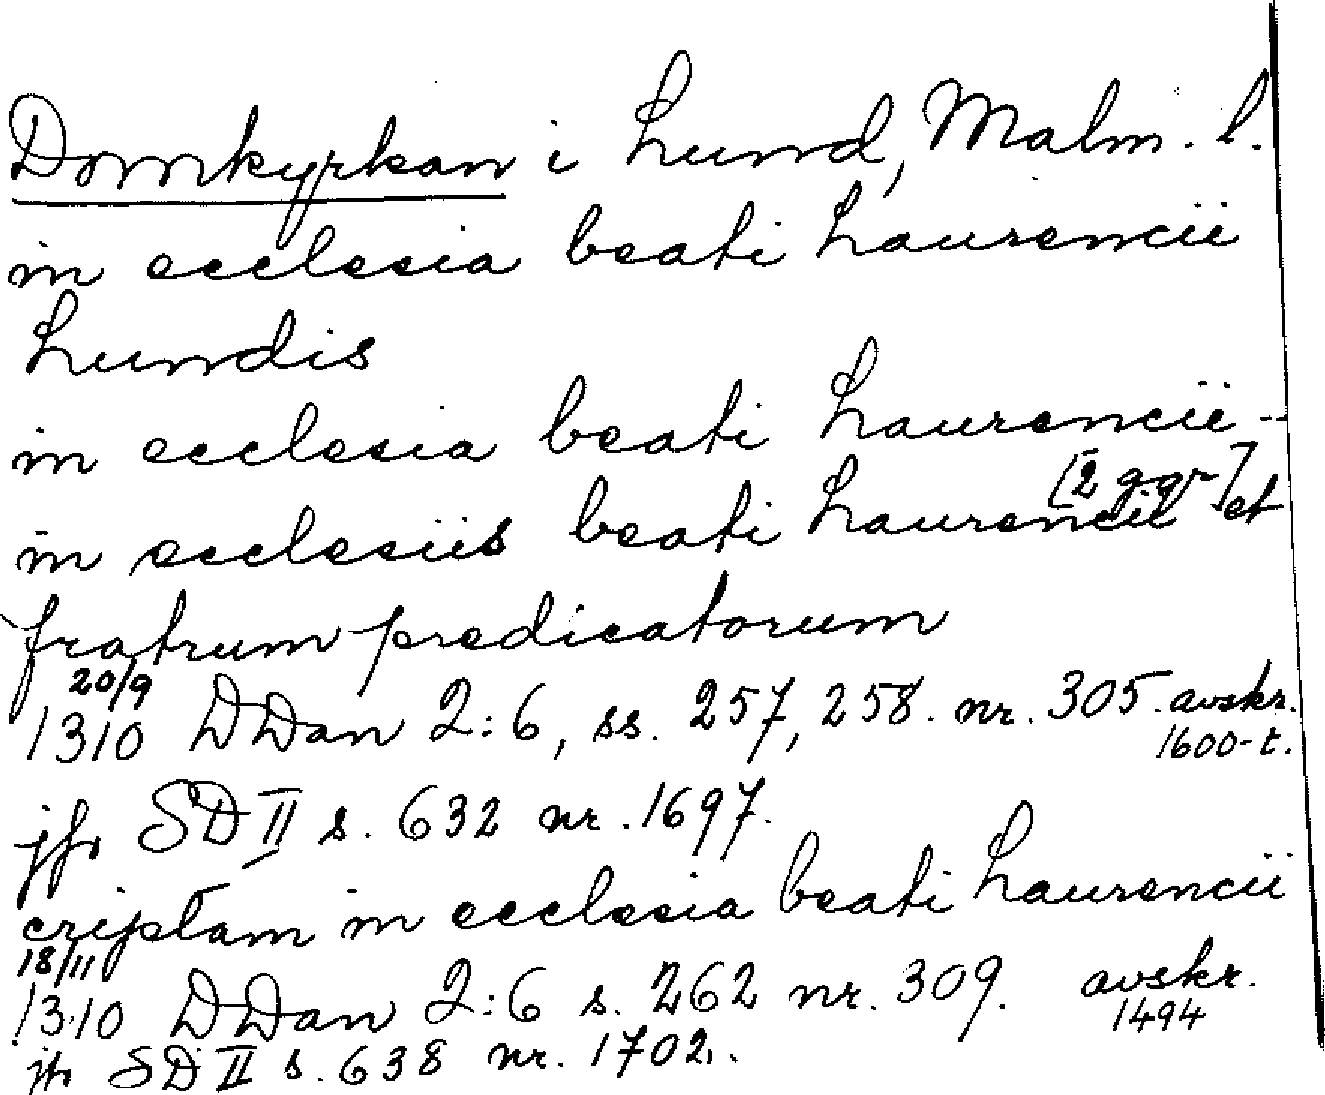 Domkyrkan i Lund, Malm. l.
in ecclesia beati Laurencii
Lundis
in ecclesia beati Laurencii -
[2 ggr]
in ecclesiis beati Laurencii et
fratrum predicatorum
20/9
1310 DDan 2:6, ss. 257, 258. nr. 305. avskr.
1600-t.
jfr SD II s. 632 nr. 1697.
criptam in ecclesia beati Laurencii
18/11
1310 DDan 2:6 s. 262 nr. 309. avskr.
1494
jfr SD II s. 638 nr. 1702.